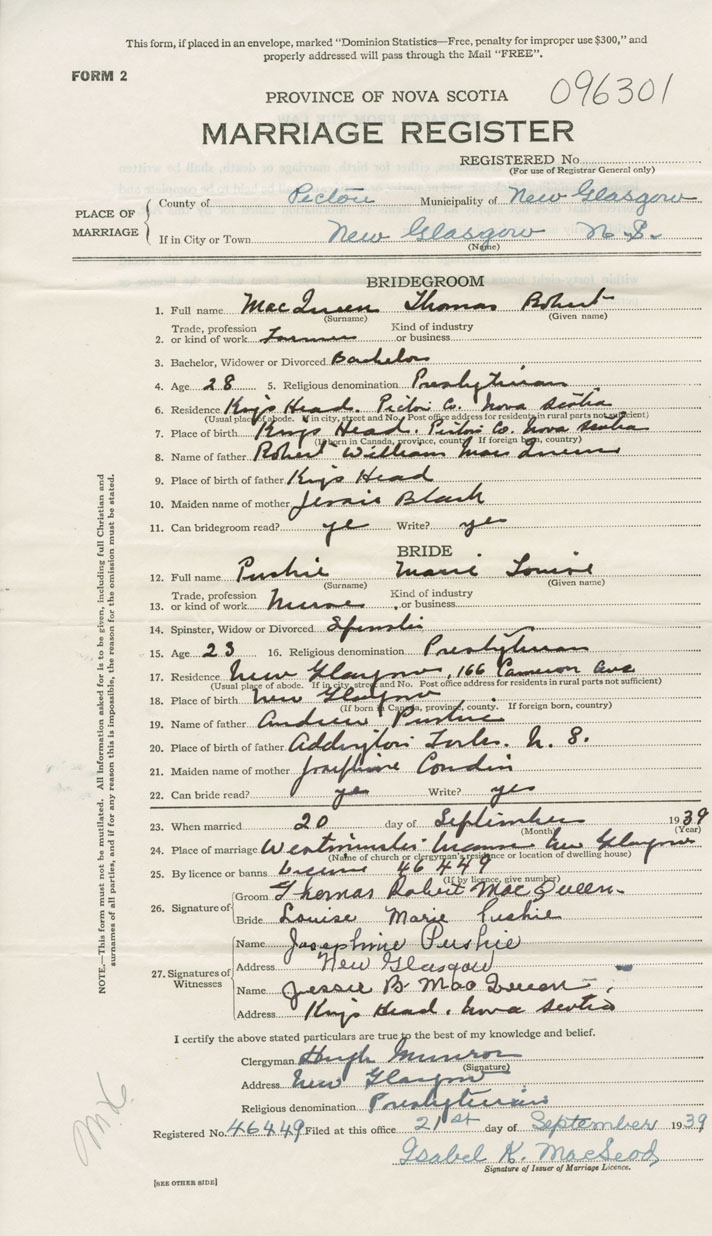 This form, if placed in an envelope, marked “Dominion Statistics—Free, penalty for improper use $300,” and
properly addressed will pass through the Mail “FREE”.
FORM 2
096301
PROVINCE OF NOVA SCOTIA
MARRIAGE REGISTER
REGISTERED No.
(For use of Registrar General only)
PLACE OF MARRIAGE
County of Pictou Municipality of New Glasgow
If in City or Town New Glasgow N.S.
(Name)
BRIDEGROOM
1. Full name MacQueen Thomas Robert
(Surname) (Given name)
2. Trade, profession or kind of work Farmer Kind of industry or business
3. Bachelor, Widower or Divorced Bachelor
4. Age 28 5. Religious denomination Presbyterian
6. Residence Kings Head. Pictou Co. Nova Scotia
(Usual place of abode. If in city, street and No. Post office address for residents in rural parts not sufficient)
7. Place of birth Kings Head. Pictou Co. Nova Scotia
(If born in Canada, province, county. If foreign born, country)
8. Name of father Robert William MacQueen
9. Place of birth of father Kings Head
10. Maiden name of mother Jessie Black
11. Can bridegroom read? yes Write? yes
BRIDE
12. Full name Pushie Marie Louise
(Surname) (Given name)
13. Trade, profession or kind of work Nurse Kind of industry or business
14. Spinster, Widow or Divorced Spinster
15. Age 23 16. Religious denomination Presbyterian
17. Residence New Glasgow, 166 Cameron Ave
(Usual place of abode. If in city, street and No. Post office address for residents in rural parts not sufficient)
18. Place of birth New Glasgow
(If born in Canada, province, county. If foreign born, country)
19. Name of father Andrew Pushie
20. Place of birth of father Addington Forks. N.S.
21. Maiden name of mother Josephine Condin
22. Can bride read? yes Write? yes
23. When married 20 day of September 1939
(Month) (Year)
24. Place of marriage Westminster Manse New Glasgow
(Name of church or clergyman's residence or location of dwelling house)
25. By licence or banns License 46449
(If by licence, give number)
26. Signature of
Groom Thomas Robert MacQueen
Bride Louise Marie Pushie
27. Signatures of Witnesses
Name Josephine Pushie
Address New Glasgow
Name Jessie B MacQueen
Address Kings Head, Nova Scotia
I certify the above stated particulars are true to the best of my knowledge and belief.
Clergyman Hugh Munroe
(Signature)
Address New Glasgow
Religious denomination Presbyterian
Registered No. 46449 Filed at this office 21st day of September 1939
Isabel K. MacLeod
Signature of Issuer of Marriage Licence.
[SEE OTHER SIDE]
NOTE.—This form must not be mutilated. All information asked for is to be given, including full Christian and
surnames of all parties, and if for any reason this is impossible, the reason for the omission must be stated.